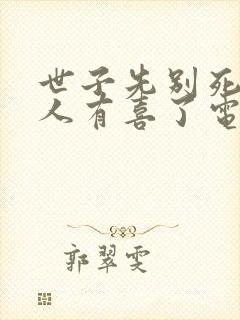 世子先别死
人有喜了电
郭翠雯